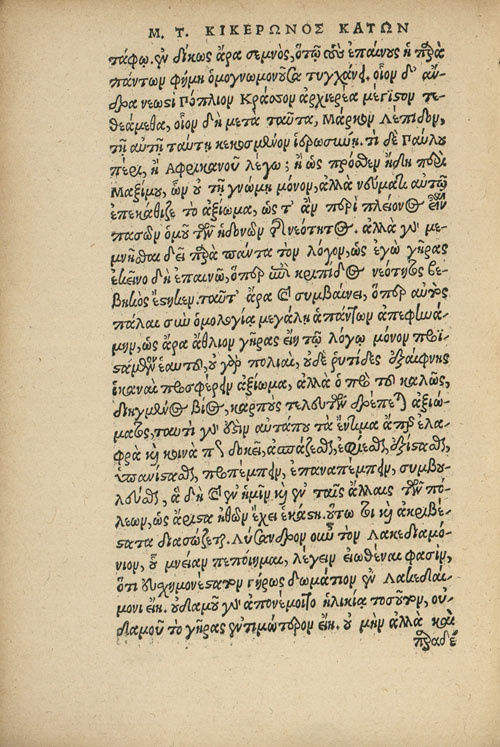 Μ. Τ. ΚΙΚΕΡΩΝΟΣ ΚΑΤΩΝ
τάφῳ. δίκως ἄρα σεμνὸς,
πάντων φήμη ὁμογνωμονοῦσα τυγχάνει. οἷον δ' ἄν-
δρα νεωστὶ Πόπλιον Κράσσον ἀρχιερέα μέγιστον τε-
θεάμεθα, οἷον δὴ μετὰ ταῦτα, Μάρκον Λέπιδον,
τῇ αὐτῇ ταύτῃ κεκοσμημένον ἱερωσύνῃ. τί δὲ Παύλου
πέρι, ἢ Ἀφρικανοῦ λέγω; ἢ ὡς πρόσθεν ἤδη περὶ
Μαξίμου, ὧν οὐ τῇ γνώμῃ μόνον, ἀλλὰ νεύματι αὐτῷ
ἐπεκάθιζε τὸ ἀξίωμα, ὥς τ' ἂν περὶ πλείονος εἶναι
πασῶν ὁμοῦ τῶν ἡδονῶν τῆς νεότητος. ἀλλὰ γὰρ με-
μνῆσθαι δεῖ παρὰ πάντα τὸν λόγον, ὡς ἐγὼ γῆρας
ἐκεῖνο δὴ ἐπαινῶ, ὅπερ ἐπὶ κρηπῖδος νεότητος βε-
βηκὸς ἕστηκεν. ταῦτ' ἄρα καὶ συμβαίνει, ὅπερ αὐτὸς
πάλαι σὺν ὁμολογίᾳ μεγάλῃ ἁπάντων ἀπεφηνά-
μην, ὡς ἄρα ἄθλιον γῆρας εἴη τῷ λόγῳ μόνον προϊ-
στάμενον ἑαυτοῦ, οὐ γὰρ πολιαὶ, οὐδὲ ῥυτίδες ἐξαίφνης
ἱκαναὶ προσφέρειν ἀξίωμα, ἀλλὰ ὁ πρὸ τοῦ καλῶς
διηγμένος βίος, καρποὺς τελευτῶν δρέπεται ἀξιώ-
ματος, ταυτὶ γὰρ αὐτάπου τὰ ἔντιμα ἅπερ ἐλα-
φρὰ καὶ κοινὰ δοκεῖ, ἀσπάζεσθαι, ἐφίεσθαι, ἐξίστασθαι,
ὑπανίστασθαι, προπέμπειν, ἐπαναπέμπειν, συμβου-
λεύεσθαι, ἃ δὴ καὶ ἐν ἡμῖν καὶ ἐν ταῖς ἄλλαις τῶν πό-
λεων, ὡς ἄριστα ἠθῶν ἔχει ἑκάστη. οὕτω τοι καὶ ἀκριβέ-
στατα διασώζεται. Λύσανδρον οὖν τὸν Λακεδαιμό-
νιον, οὗ μνείαν πεποίημαι, λέγειν εἰωθέναι φασὶν,
ὅτι εὐσχημονέστατον γήρως δωμάτιον ἐν Λακεδαί-
μονι εἴη. οὐδαμοῦ γὰρ ἀπονέμοιτο ἡλικίᾳ τοσοῦτον, οὐ-
δαμοῦ τὸ γῆρας ἐντιμώτερον εἴη. οὐ μὴν ἀλλὰ καὶ
παραδέ